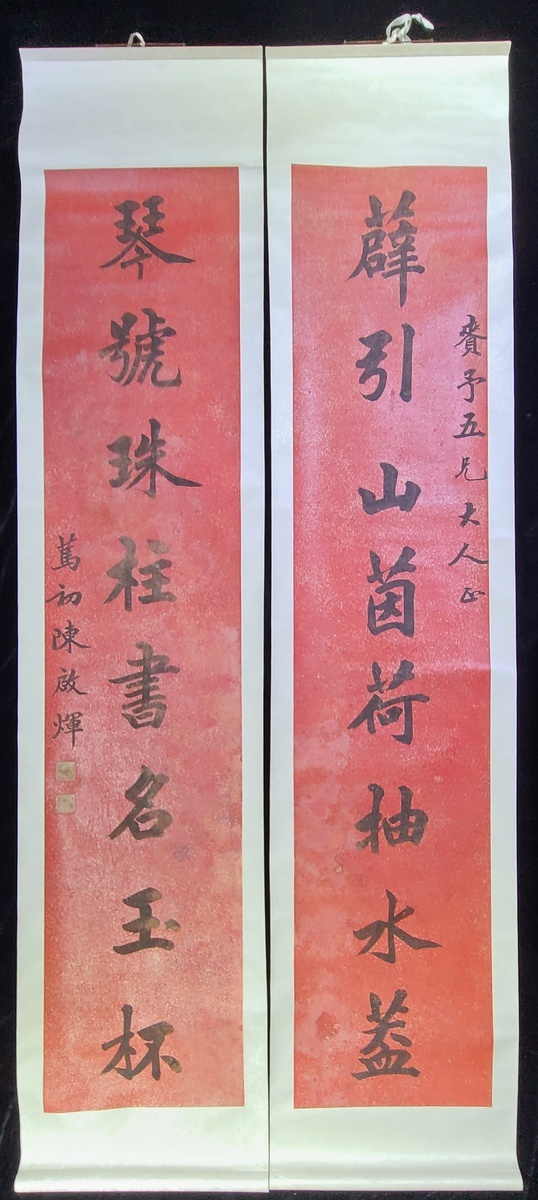 賚予五兄大人正
薜引山茵荷抽水蓋
琴號珠柱書名玉杯
篤初陳啟煇